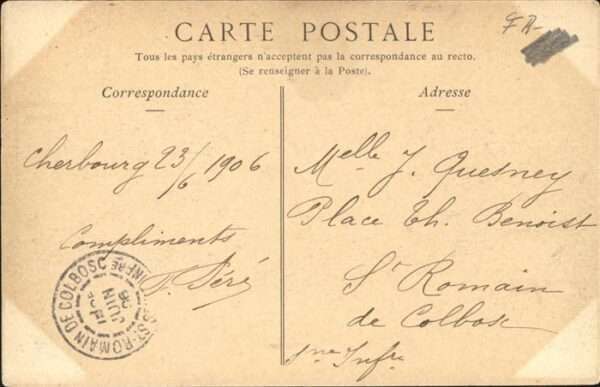 CARTE POSTALE
Tous les pays étrangers n'acceptent pas la correspondance au recto.
(Se renseigner à la Poste).
Correspondance
Adresse
Cherbourg 23/6 1906
Compliments
Melle J. Quesney
Place Th. Benoist
St Romain
de Colbosc
Sne Infre
ST-ROMAIN DE COLBOSC
JUIN
06